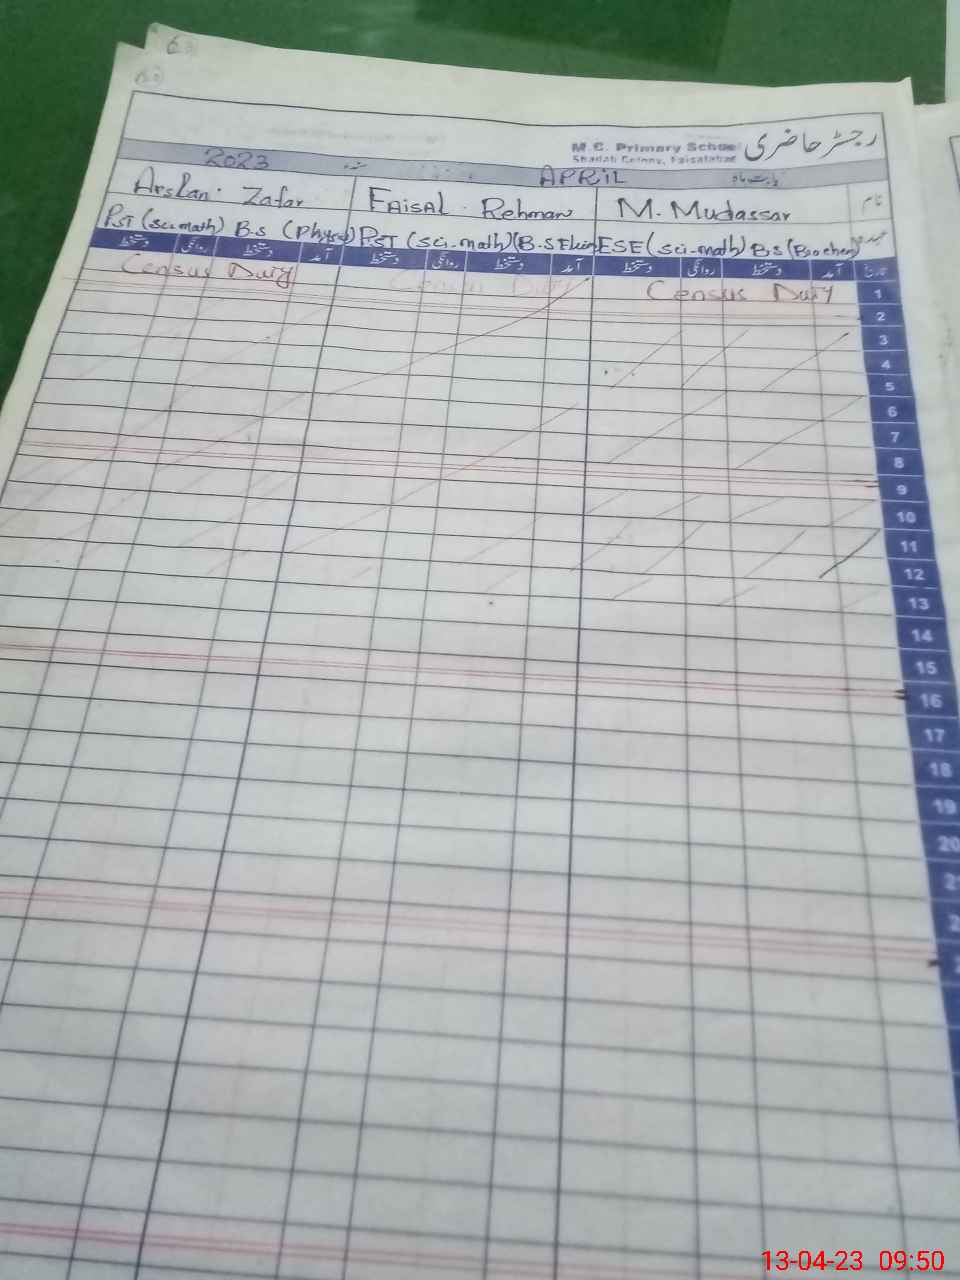 رجسٹر حاضری
M.C. Primary School
Shadab Colony, Faisalabad
2023 APRIL بابت ماہ
Arslan Zafar FAISAL Rehman M. Mudassar نام
PST (sci.math) B.S (Physc) PST (sci-math) ESE (sci-math) B.S (Biochem) عہدہ
دستخط روانگی دستخط آمد دستخط روانگی دستخط آمد دستخط روانگی دستخط آمد تاریخ
Census Duty Census Duty Census Duty 1
2
3
4
5
6
7
8
9
10
11
12
13
14
15
16
17
18
19
20
13-04-23 09:50